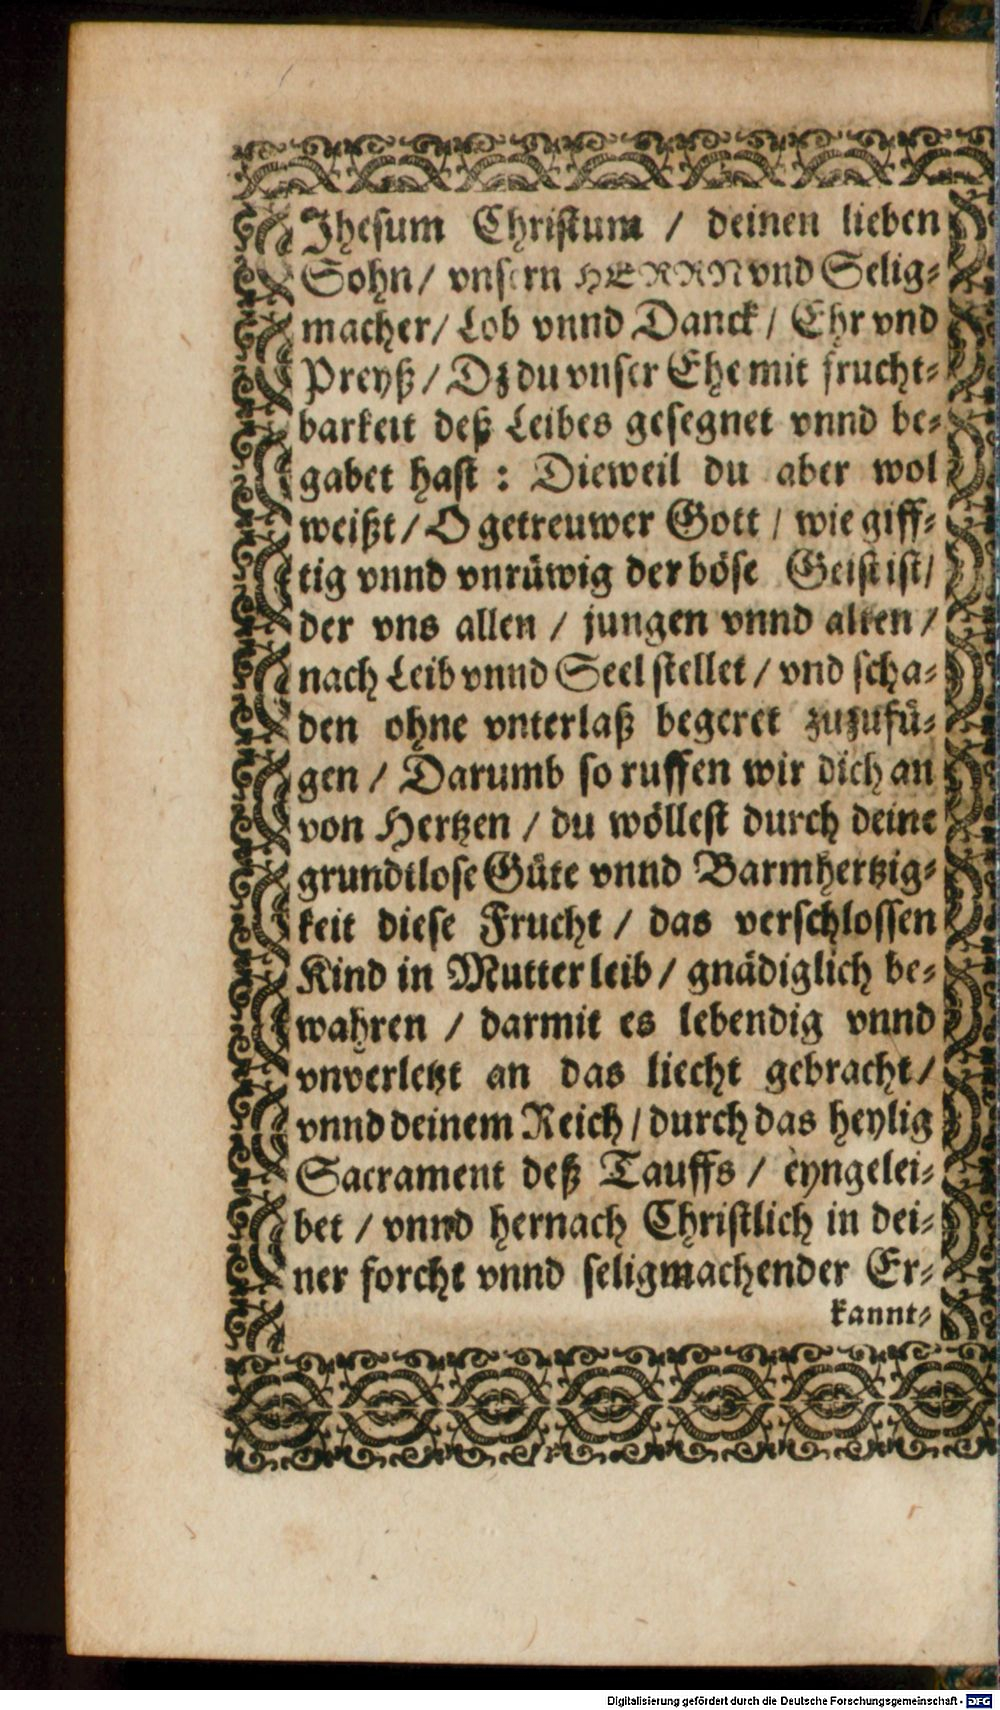 Jhesum Christum / deinen lieben
Sohn / vnsern HERRN vnd Selig-
macher / Lob vnnd Danck / Ehr vnd
Preyß / Dz du vnser Ehe mit frucht-
barkeit deß Leibes gesegnet vnnd be-
gabet hast : Dieweil du aber wol
weißt / O getreuwer Gott / wie giff-
tig vnnd vnrüwig der böse Geist ist /
der vns allen / jungen vnnd alten /
nach Leib vnnd Seel stellet / vnd scha-
den ohne vnterlaß begeret zuzufü-
gen / Darumb so ruffen wir dich an
von Hertzen / du wöllest durch deine
grundtlose Güte vnnd Barmhertzig-
keit diese Frucht / das verschlossen
Kind in Mutter leib / gnädiglich be-
wahren / darmit es lebendig vnnd
vnverletzt an das liecht gebracht /
vnnd deinem Reich / durch das heylig
Sacrament deß Tauffs / eyngelei-
bet / vnnd hernach Christlich in dei-
ner forcht vnnd seligmachender Er-
kannt-
Digitalisierung gefördert durch die Deutsche Forschungsgemeinschaft - DFG